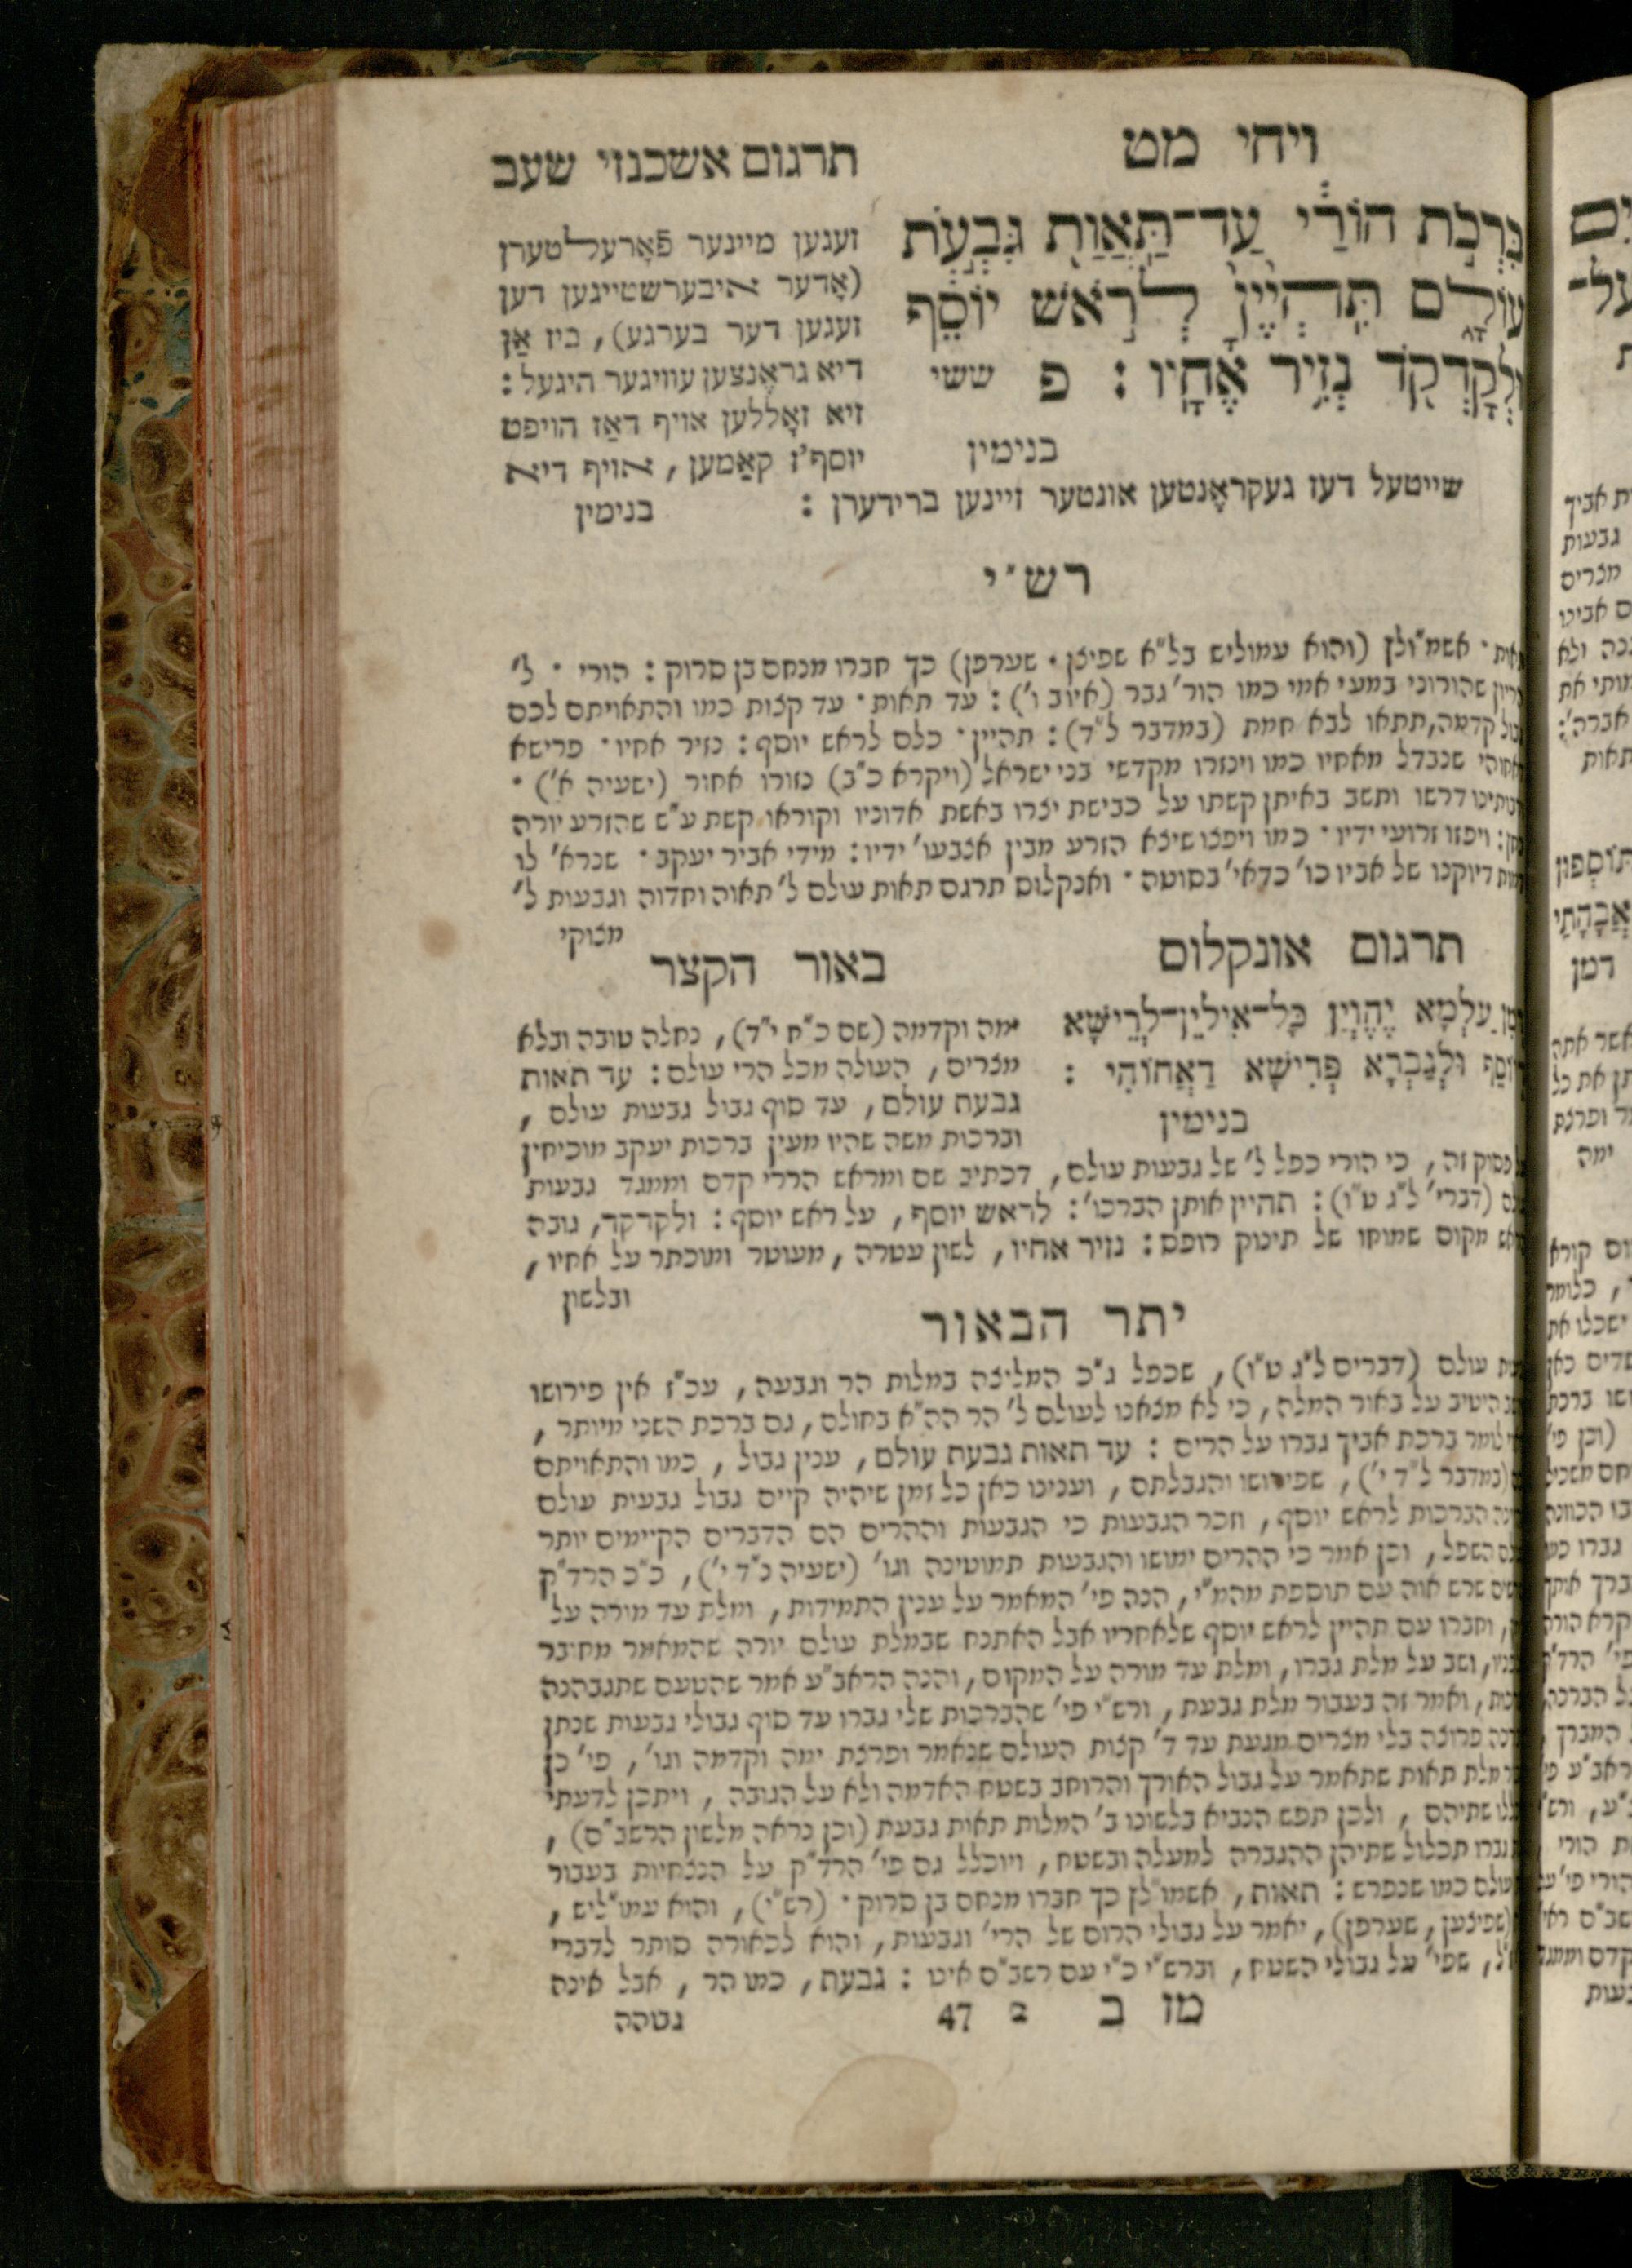 ויחי מט
תרגום אשכנזי שעב
בִּרְכֹ֣ת הוֹרַ֔י עַד־תַּֽאֲוַ֖ת גִּבְעֹ֣ת
עוֹלָ֑ם תִּֽהְיֶ֙יןָ֙ לְרֹ֣אשׁ יוֹסֵ֔ף
וּלְקָדְקֹ֖ד נְזִ֥יר אֶחָֽיו : פ ששי
בנימין
זעגען מיינער פֿאָרעלטערן
(אָדער איבערשטייגען דען
זעגען דער בערגע), ביז אַן
דיא גראֶנצען עוויגער היגעל :
זיא זאָללען אויף דאַז הויפט
יוסף'ז קאָמען, אויף דיא
שייטעל דעז געקראָנטען אונטער זיינען ברידערן :
בנימין
רש"י
אשמ"ולן (והוא עמוליש בל"א שפיצן · שערפן) כך חברו מנחם בן סרוק : הורי · ל'
שהורוני במעי אמי כמו הור' גבר (איוב ו') : עד תאות · עד קצות כמו והתאויתם לכם
קדמה, תתאו לבא חמת (במדבר ל"ד) : תהיין · כלם לראש יוסף : נזיר אחיו · פרישא
שנבדל מאחיו כמו וינזרו מקדשי בני ישראל (ויקרא כ"ב) נזורו אחור (ישעיה א') ·
דרשו ותשב באיתן קשתו על כבישת יצרו באשת אדוניו וקוראו קשת ע"ש שהזרע יורה
: ויפוזו זרועי ידיו · כמו ויפצו שיצא הזרע מבין אצבעו' ידיו : מידי אביר יעקב · שנרא' לו
דיוקנו של אביו כו' כדאי' בסוטה · ואנקלוס תרגם תאות עולם ל' תאוה וחדוה וגבעות ל'
מצוקי
תרגום אונקלוס
עַלְמָא יֶהֶוְיָן כָּל־אִילֵין־לְרֵישָׁא
וּלְגַבְרָא פְּרִישָׁא דַאֲחוֹהִי :
בנימין
באור הקצר
ימה וקדמה (שם כ"ח י"ד), נחלה טובה ובלא
מצרים, העולה מכל הרי עולם : עד תאות
גבעת עולם, עד סוף גבול גבעות עולם,
וברכות משה שהיו מעין ברכות יעקב מוכיחין
פסוק זה, כי הורי כפל ל' של גבעות עולם, דכתיב שם ומראש הררי קדם וממגד גבעות
(דברי' ל"ג ט"ו) : תהיין אותן הברכו' : לראש יוסף, על ראש יוסף : ולקדקד, גובה
מקום שמוחו של תינוק רופס : נזיר אחיו, לשון עטרה, מעוטר ומוכתר על אחיו,
ובלשון
יתר הבאור
עולם (דברים ל"ג ט"ו), שכפל ג"כ המליצה במלות הר וגבעה, עכ"ז אין פירושו
היטיב על באור המלה, כי לא מצאנו לעולם ל' הר הה"א בחולם, גם ברכת השני מיותר,
לומר ברכת אביך גברו על הרים : עד תאות גבעת עולם, ענין גבול, כמו והתאויתם
(במדבר ל"ד י'), שפירושו והגבלתם, וענינו כאן כל זמן שיהיה קיים גבול גבעות עולם
הברכות לראש יוסף, וזכר הגבעות כי הגבעות וההרים הם הדברים הקיימים יותר
השפל, וכן אמר כי ההרים ימושו והגבעות תמוטינה וגו' (ישעיה נ"ד י'), כ"כ הרד"ק
שרש אוה עם תוספת מהמ"י, הנה פי' המאמר על ענין התמידות, ומלת עד מורה על
וחברו עם תהיין לראש יוסף שלאחריו אבל האתנח שבמלת עולם יורה שהמאמר מחובר
ושב על מלת גברו, ומלת עד מורה על המקום, והנה הראב"ע אמר שהטעם שתגבהנה
ואמר זה בעבור מלת גבעת, ורש"י פי' שהברכות שלי גברו עד סוף גבולי גבעות שנתן
פרוצה בלי מצרים מגעת עד ד' קצות העולם שנאמר ופרצת ימה וקדמה וגו', פי' כן
מלת תאות שתאמר על גבול האורך והרוחב בשטח האדמה ולא על הגובה, ויתכן לדעתי
שתיהם, ולכן תפש הנביא בלשונו ב' המלות תאות גבעת (וכן נראה מלשון הרשב"ם),
גברו תכלול שתיהן ההגברה למעלה ובשטח, ויוכלל גם פי' הרד"ק על הנצחיות בעבור
עולם כמו שנפרש : תאות, אשמו"לן כך חברו מנחם בן סרוק · (רש"י), והוא עמו"ליש,
(שפיצען, שערפן), יאמר על גבולי הרום של הרי' וגבעות, והוא לכאורה סותר לדברי
שפי' על גבולי השטח, וברש"י כ"י עם רשב"ם אינו : גבעת, כמו הר, אבל אינה
מז ב 47 ב
גבוהה